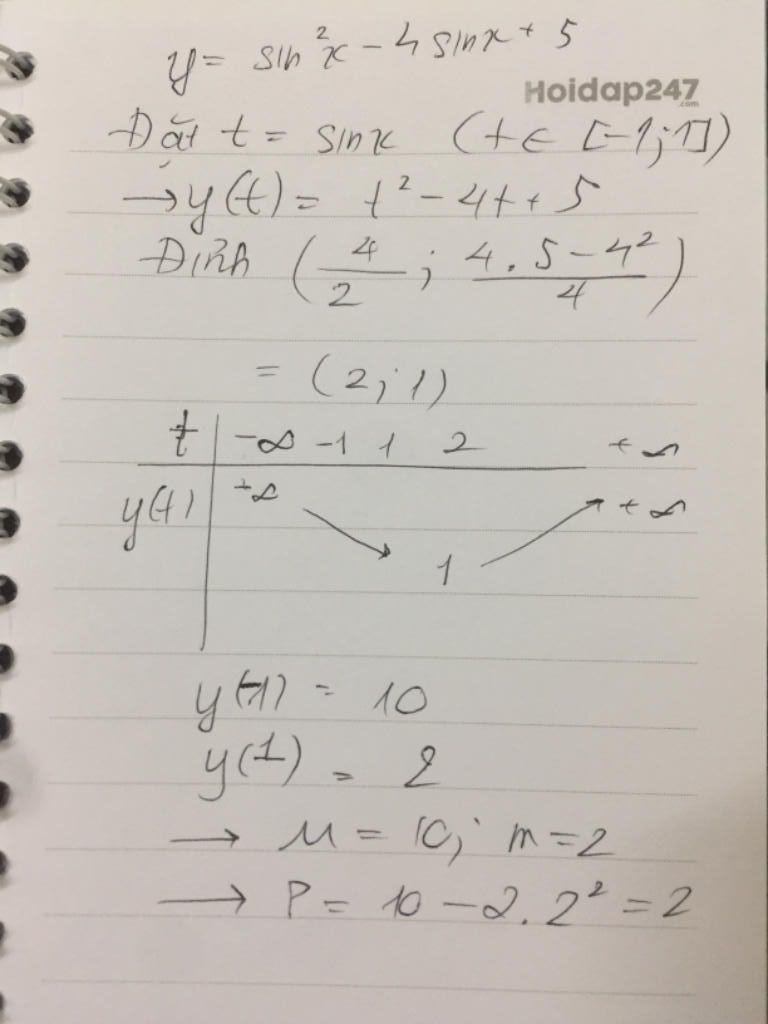 y = sin²x - 4 sinx + 5
Hoidap247
.com
Đặt t = sinx (t ∈ [-1; 1])
→ y(t) = t² - 4t + 5
Đỉnh (4/2 ; (4.5 - 4²)/4)
= (2; 1)
t | -∞ -1 1 2 +∞
y(t) | +∞ 1 +∞
y(-1) = 10
y(1) = 2
→ M = 10; m = 2
→ P = 10 - 2.2² = 2